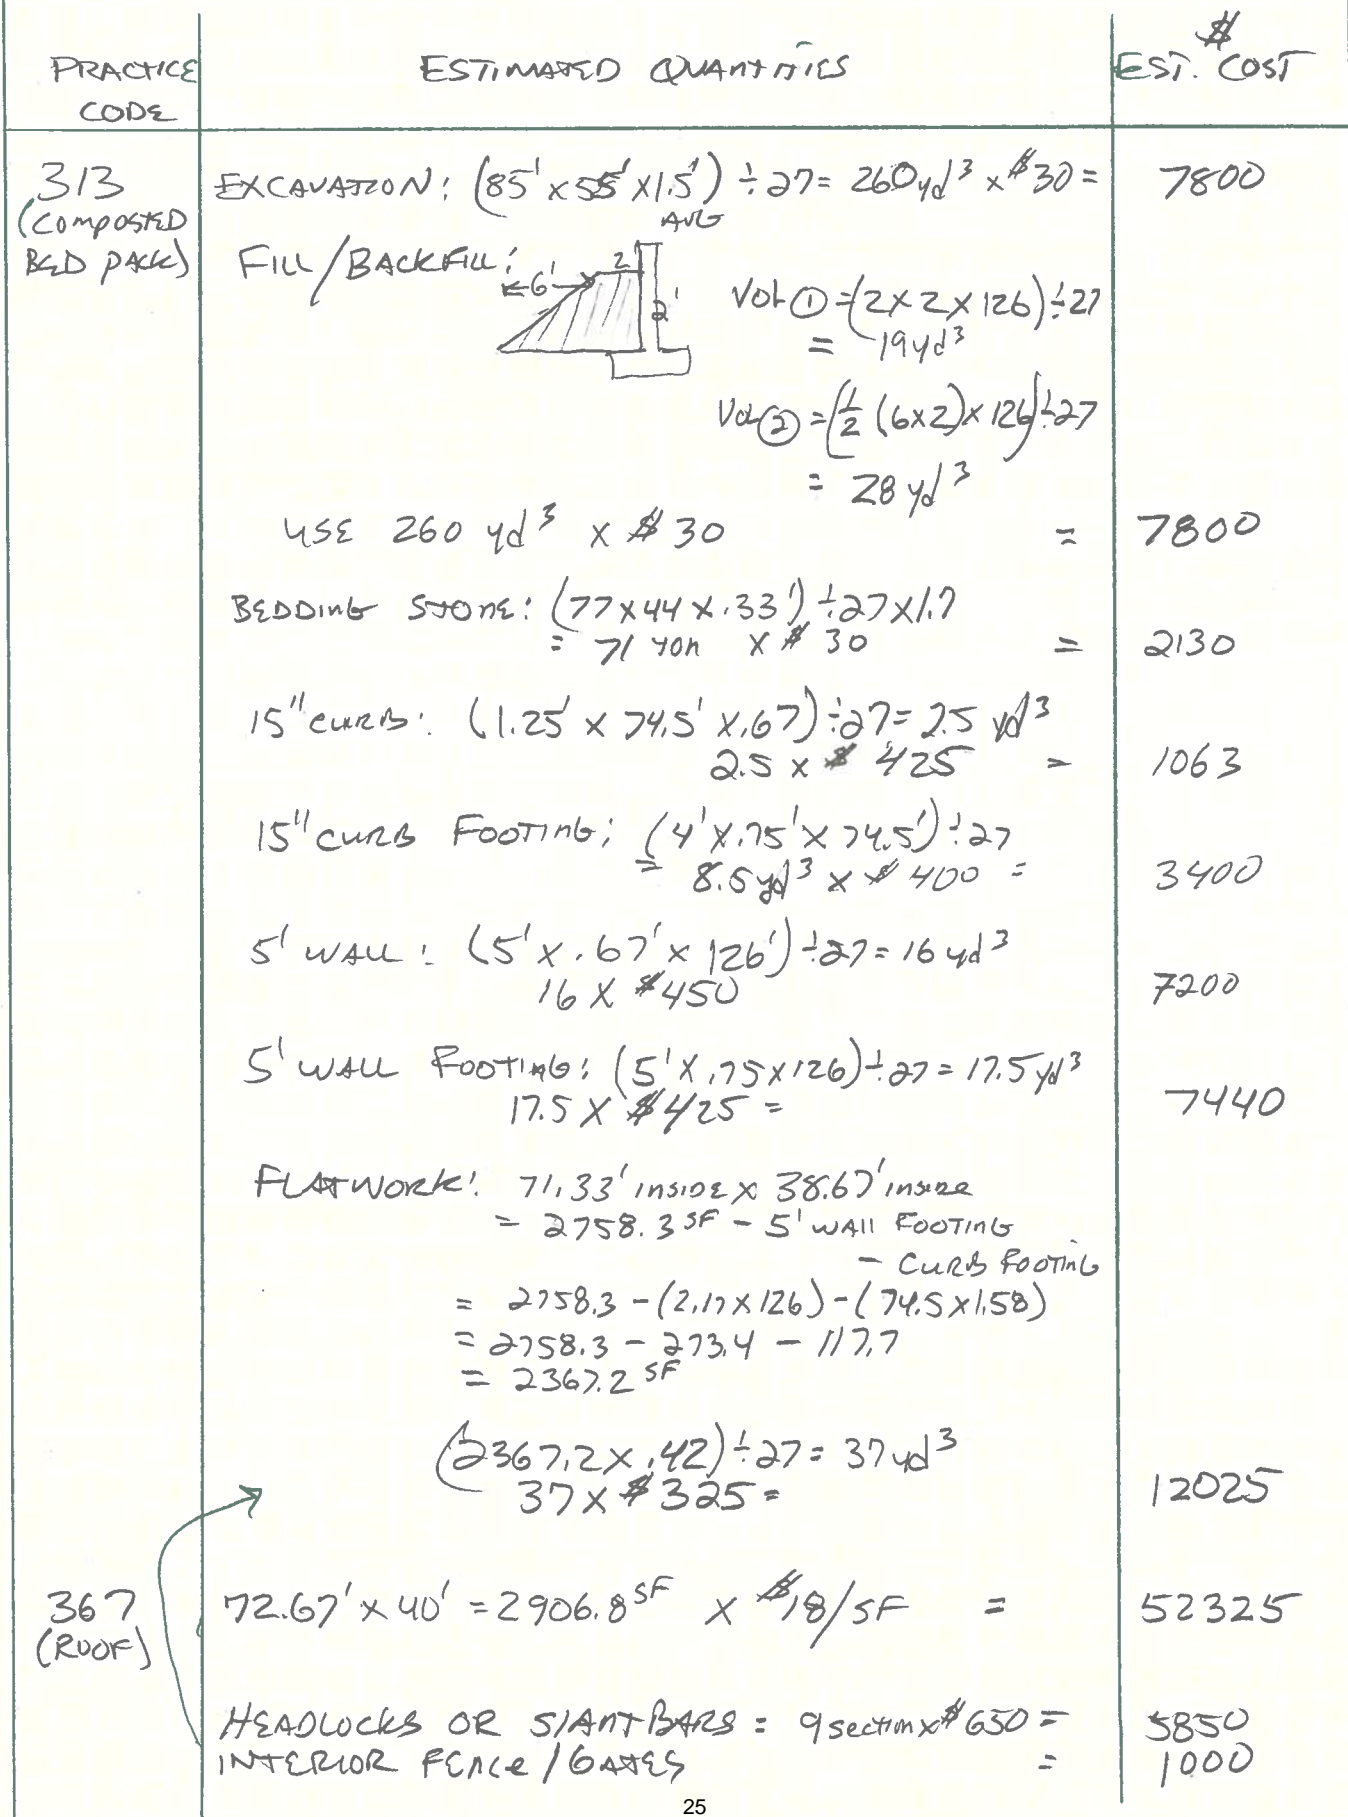 PRACTICE CODE
ESTIMATED QUANTITIES
$ EST. COST
313
(COMPOSTED
BED PACK)
EXCAVATION: (85' x 55' x 1.5') ÷ 27 = 260 yd³ x $30 = 7800
AVG
FILL/BACKFILL:
2'
6'
2'
VOL ① = (2 x 2 x 126) ÷ 27
= 19 yd³
Vol ② = (1/2 (6x2) x 126) ÷ 27
= 28 yd³
USE 260 yd³ x $30 = 7800
BEDDING STONE: (77 x 44 x .33') ÷ 27 x 1.7
= 71 ton x $30 = 2130
15" CURB: (1.25' x 74.5' x .67) ÷ 27 = 2.5 yd³
2.5 x $425 = 1063
15" CURB FOOTING: (4' x .75' x 74.5') ÷ 27
= 8.5 yd³ x $400 = 3400
5' WALL: (5' x .67' x 126') ÷ 27 = 16 yd³
16 x $450 7200
5' WALL FOOTING: (5' x .75 x 126) ÷ 27 = 17.5 yd³
17.5 x $425 = 7440
FLATWORK: 71.33' INSIDE x 38.67' inside
= 2758.3 SF - 5' WALL FOOTING
- CURB FOOTING
= 2758.3 - (2.17 x 126) - (74.5 x 1.58)
= 2758.3 - 273.4 - 117.7
= 2367.2 SF
(2367.2 x .42) ÷ 27 = 37 yd³
37 x $325 = 12025
367
(ROOF)
72.67' x 40' = 2906.8 SF x $18/SF = 52325
HEADLOCKS OR SLANT BARS = 9 section x $650 = 5850
INTERIOR FENCE / GATES = 1000
25